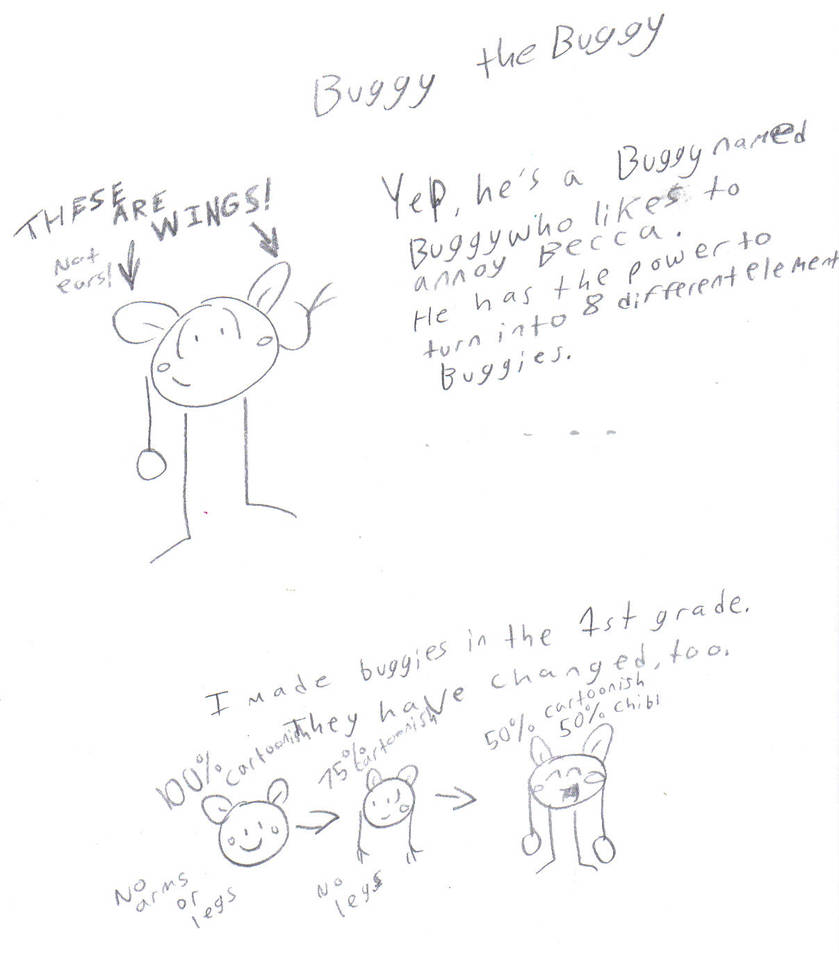 Buggy the Buggy
THESE
ARE
WINGS!
Not
ears!
Yep, he's a Buggy named
Buggy who likes to
annoy Becca.
He has the power to
turn into 8 different element
Buggies.
I made buggies in the 1st grade.
They have changed, too.
100%
cartoonish
75%
cartoonish
50% cartoonish
50% chibi
No
arms
or
legs
No
legs